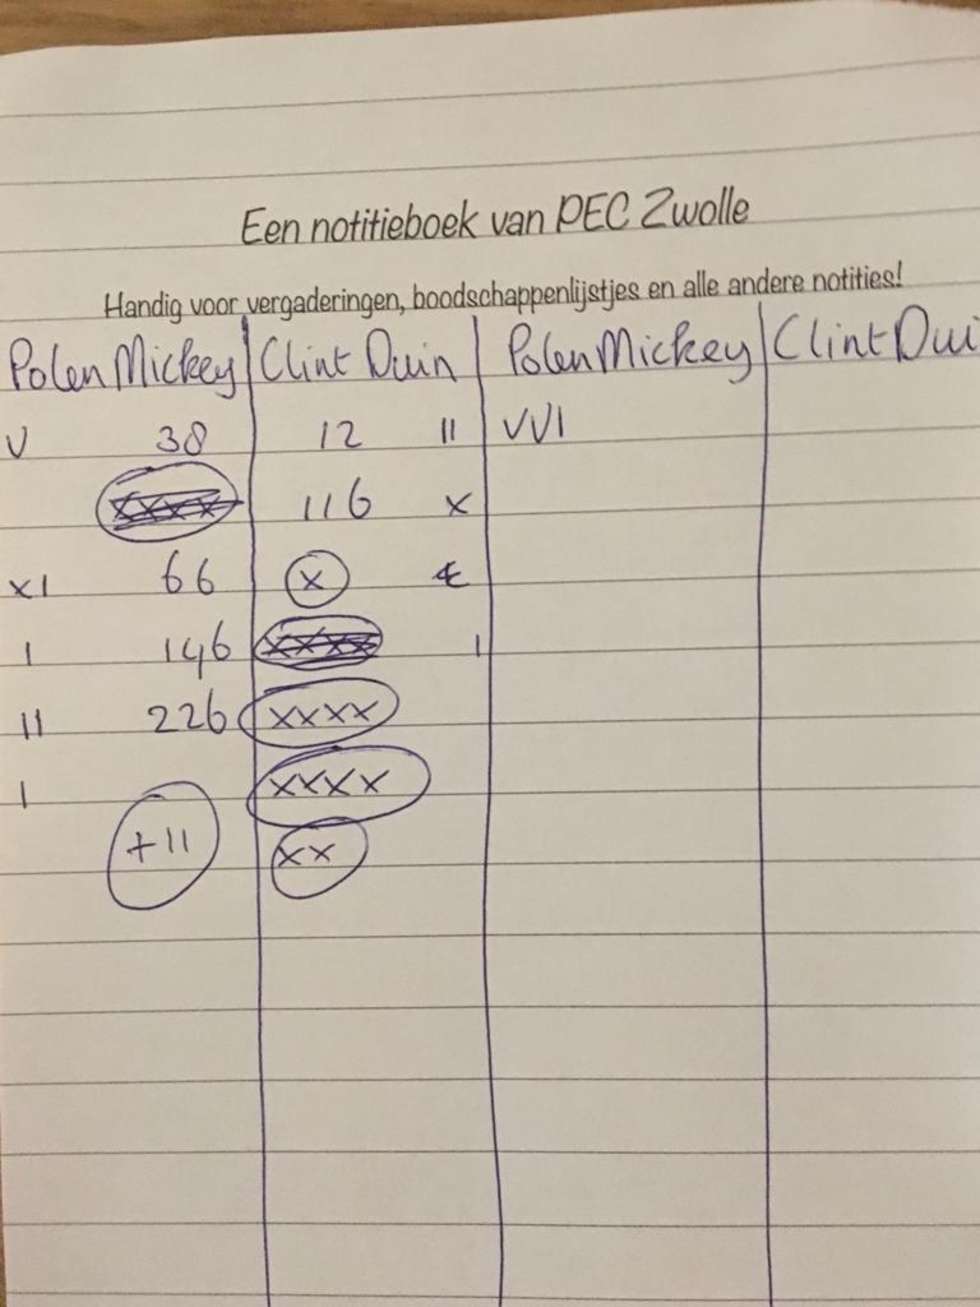 Een notitieboek van PEC Zwolle
Handig voor vergaderingen, boodschappenlijstjes en alle andere notities!
Polen Mickey Clint Duin Polen Mickey Clint Dui
V 38 12 II VVI
116 X
XI 66 X
I 146 I
II 226 XXXX
I XXXX
+11 XX